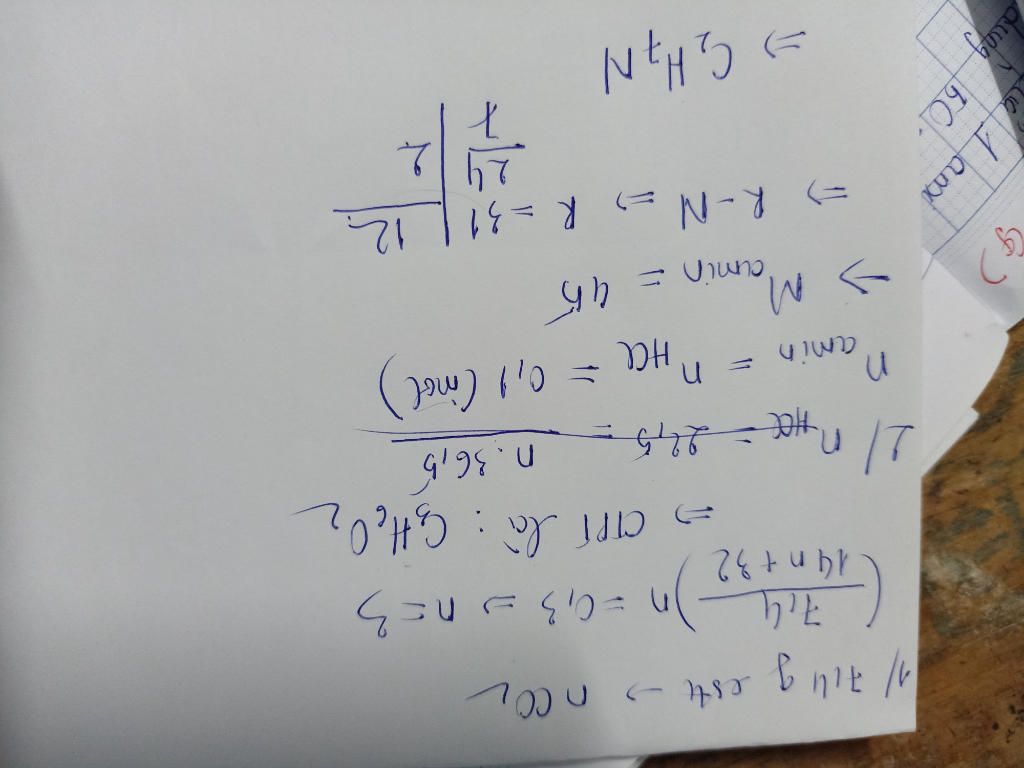 1/ 7,4 g este → nCO2
(7,4 / 14n+32) n = 0,3 ⇒ n = 3
⇒ CTPT là : C3H6O2
2/ nHCl = 22,5 = n.36,5
n amin = nHCl = 0,1 (mol)
→ M amin = 45
⇒ R-N ⇒ R = 31 | 12
24 | 2
7
⇒ C2H7N
1 am
50
(g)